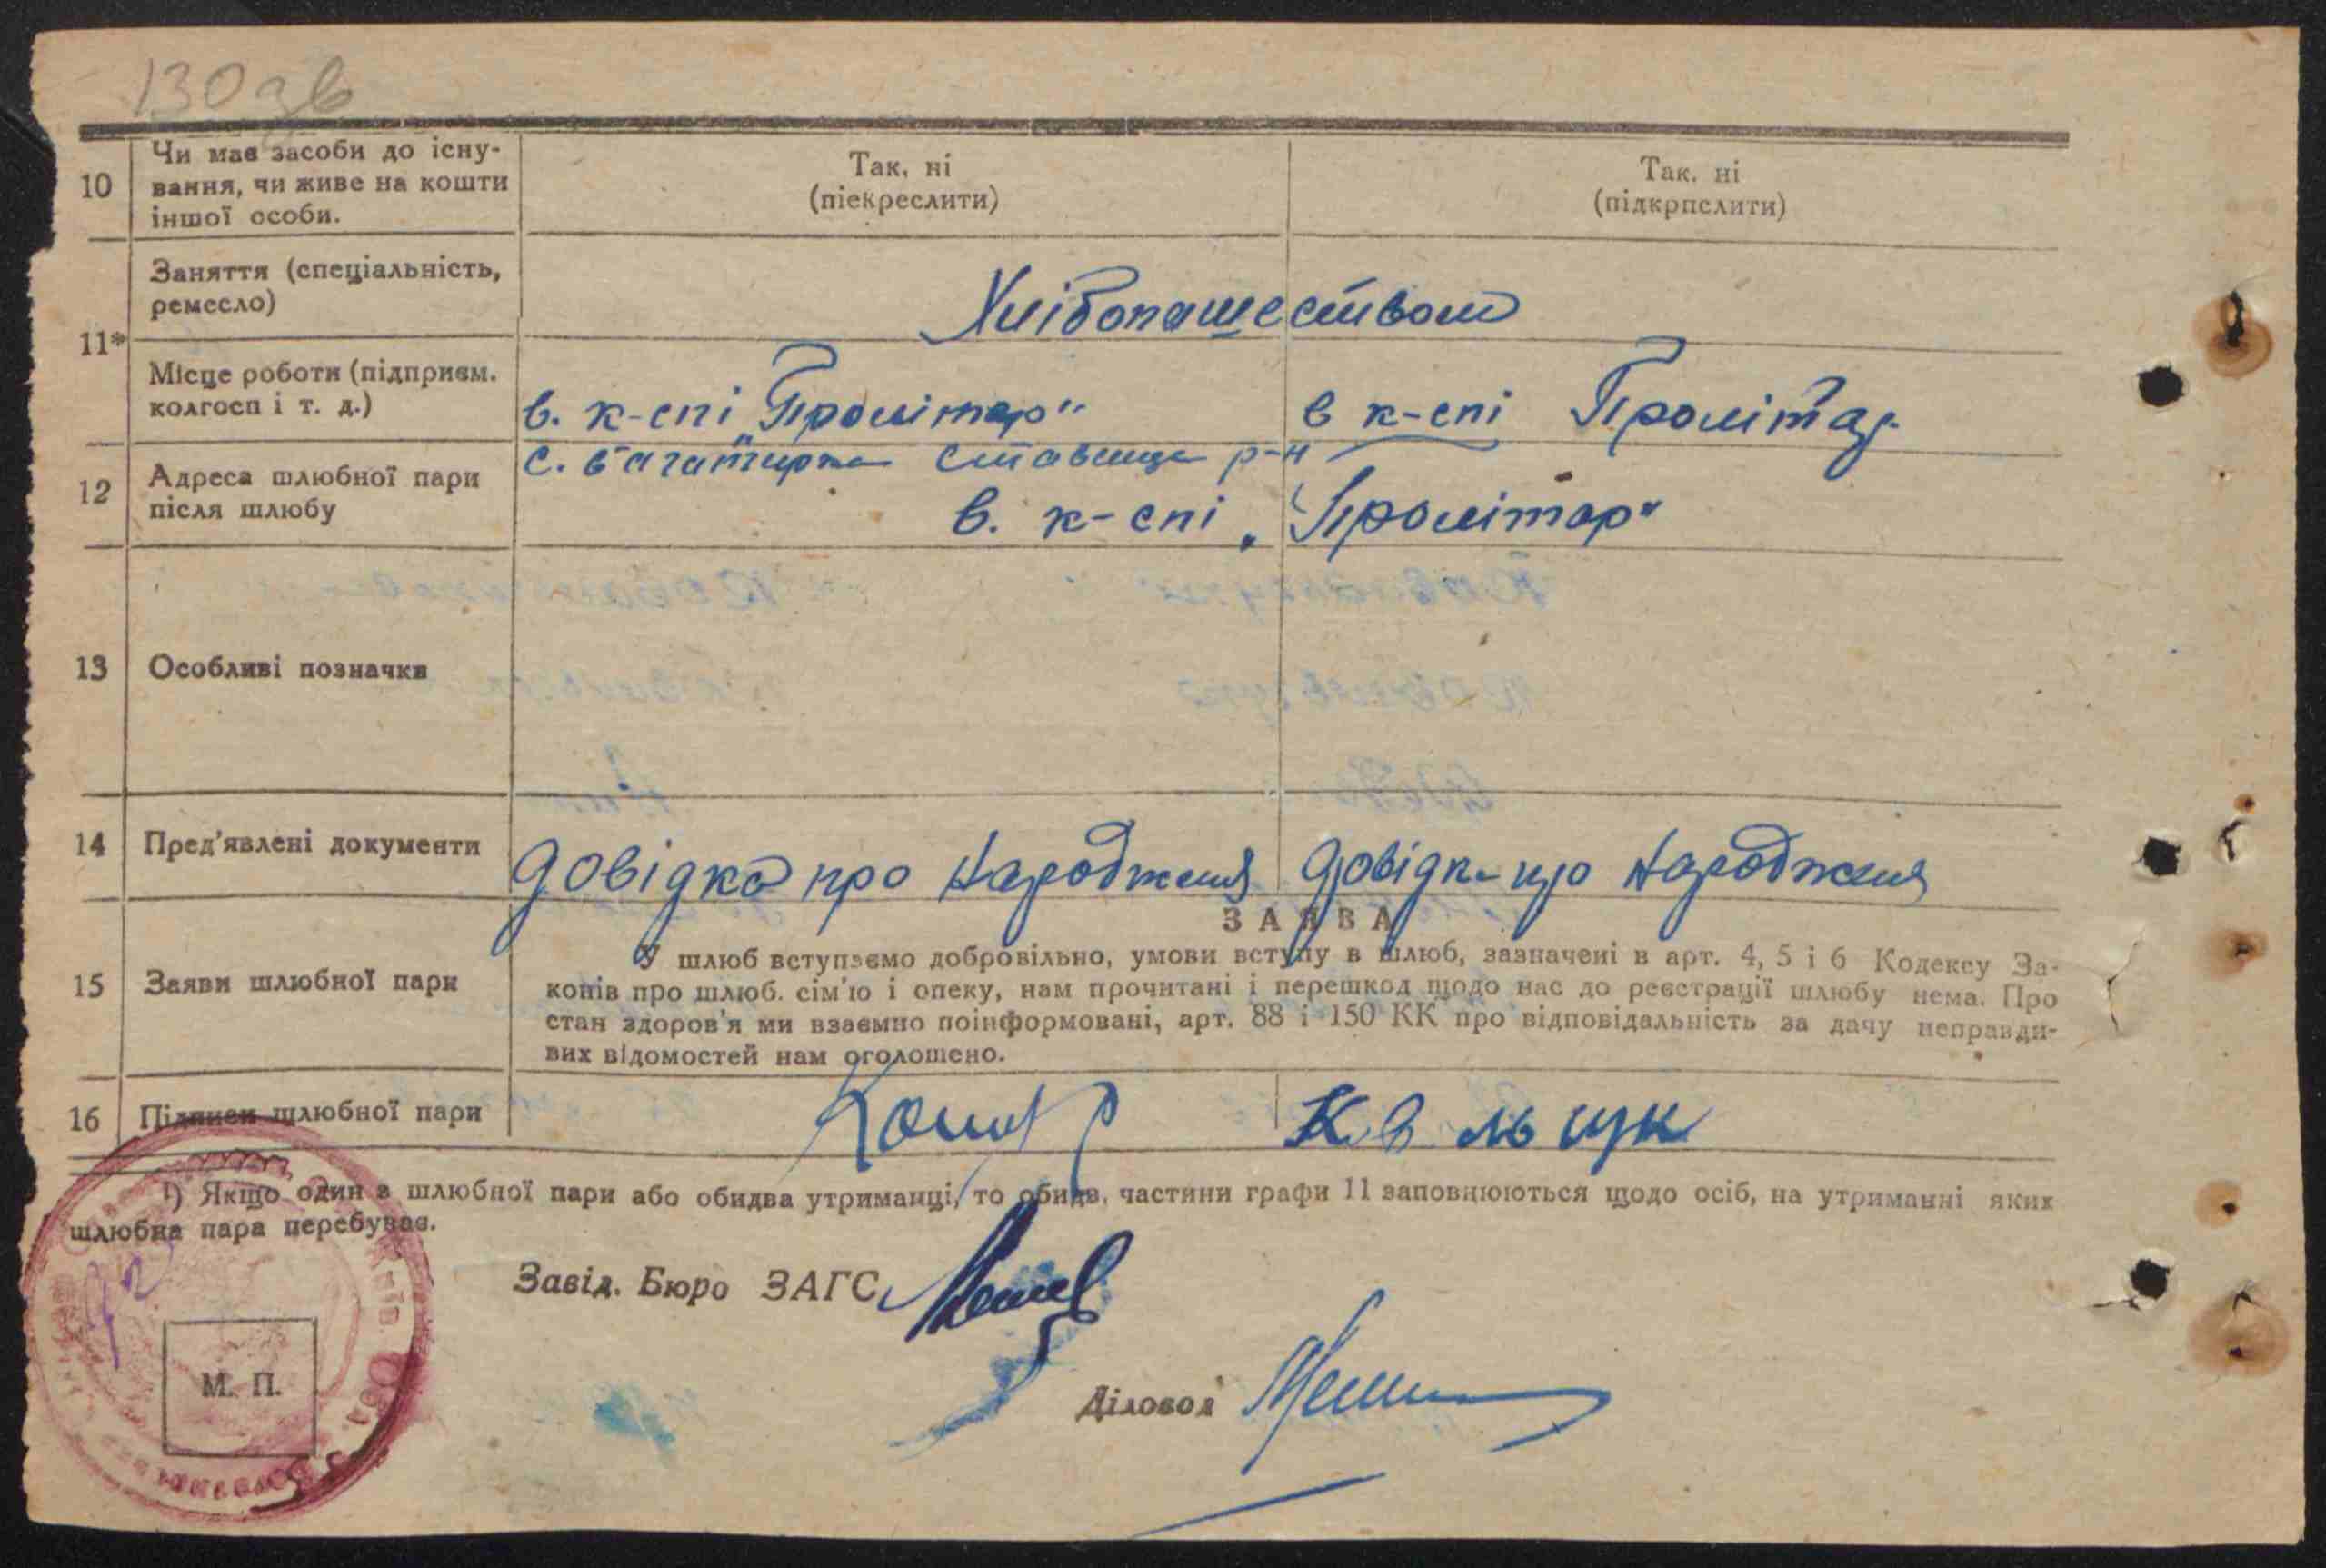 130 зв
10 Чи має засоби до існу-
вання, чи живе на кошти
іншої особи.
Так, ні
(піекреслити)
Так, ні
(підкрпслити)
11*
Заняття (спеціальність,
ремесло)
Хлібопашеством
Місце роботи (підприєм.
колгосп і т. д.)
в. к-спі „Пролітар"
в к-спі Пролітар
12 Адреса шлюбної пари
після шлюбу
с. Багатирка Ставище р-н
в. к-спі „Пролітар"
13 Особливі позначки
14 Пред'явлені документи
Довідка про народження
Довідка про народження
15 Заяви шлюбної пари
ЗАЯВА
У шлюб вступаємо добровільно, умови вступу в шлюб, зазначені в арт. 4, 5 і 6 Кодексу За-
конів про шлюб. сім'ю і опеку, нам прочитані і перешкод щодо нас до реєстрації шлюбу нема. Про
стан здоров'я ми взаємно поінформовані, арт. 88 і 150 КК про відповідальність за дачу неправди-
вих відомостей нам оголошено.
16 Підписи шлюбної пари
¹) Якщо один з шлюбної пари або обидва утриманці, то обидв. частини графи 11 заповнюються щодо осіб, на утриманні яких
шлюбна пара перебуває.
Завід. Бюро ЗАГС
М. П.
Діловод